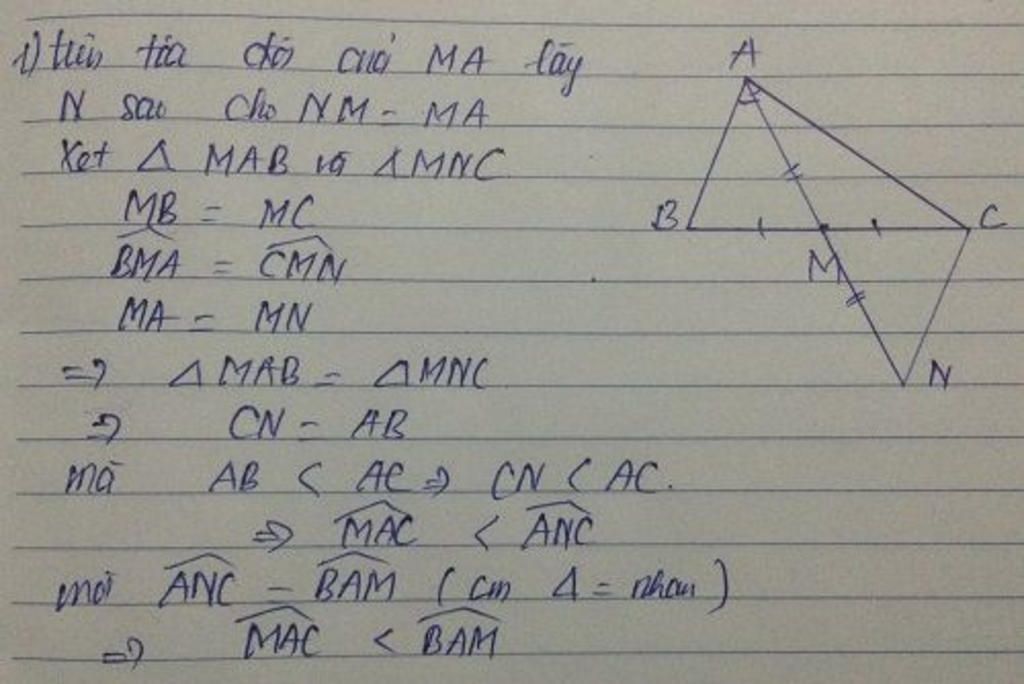 1) trên tia đối của MA lấy
N sao cho NM = MA
Xét Δ MAB và ΔMNC
MB = MC
BMA = CMN
MA = MN
=> Δ MAB = ΔMNC
=> CN = AB
mà AB < AC => CN < AC.
=> MAC < ANC
mà ANC = BAM (cm Δ = nhau)
=> MAC < BAM
A
B
C
M
N